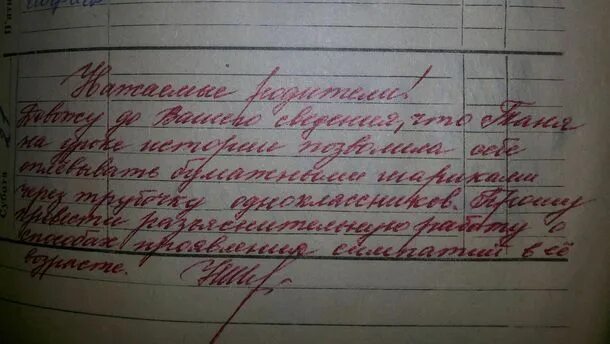 П'ятн
Субота
Уважаемые родители!
Довожу до Вашего сведения, что Таня
на уроке истории позволила себе
оплевывать бумажными шариками
через трубочку одноклассников. Прошу
провести разъяснительную работу о
способах проявления симпатий в её
возрасте.